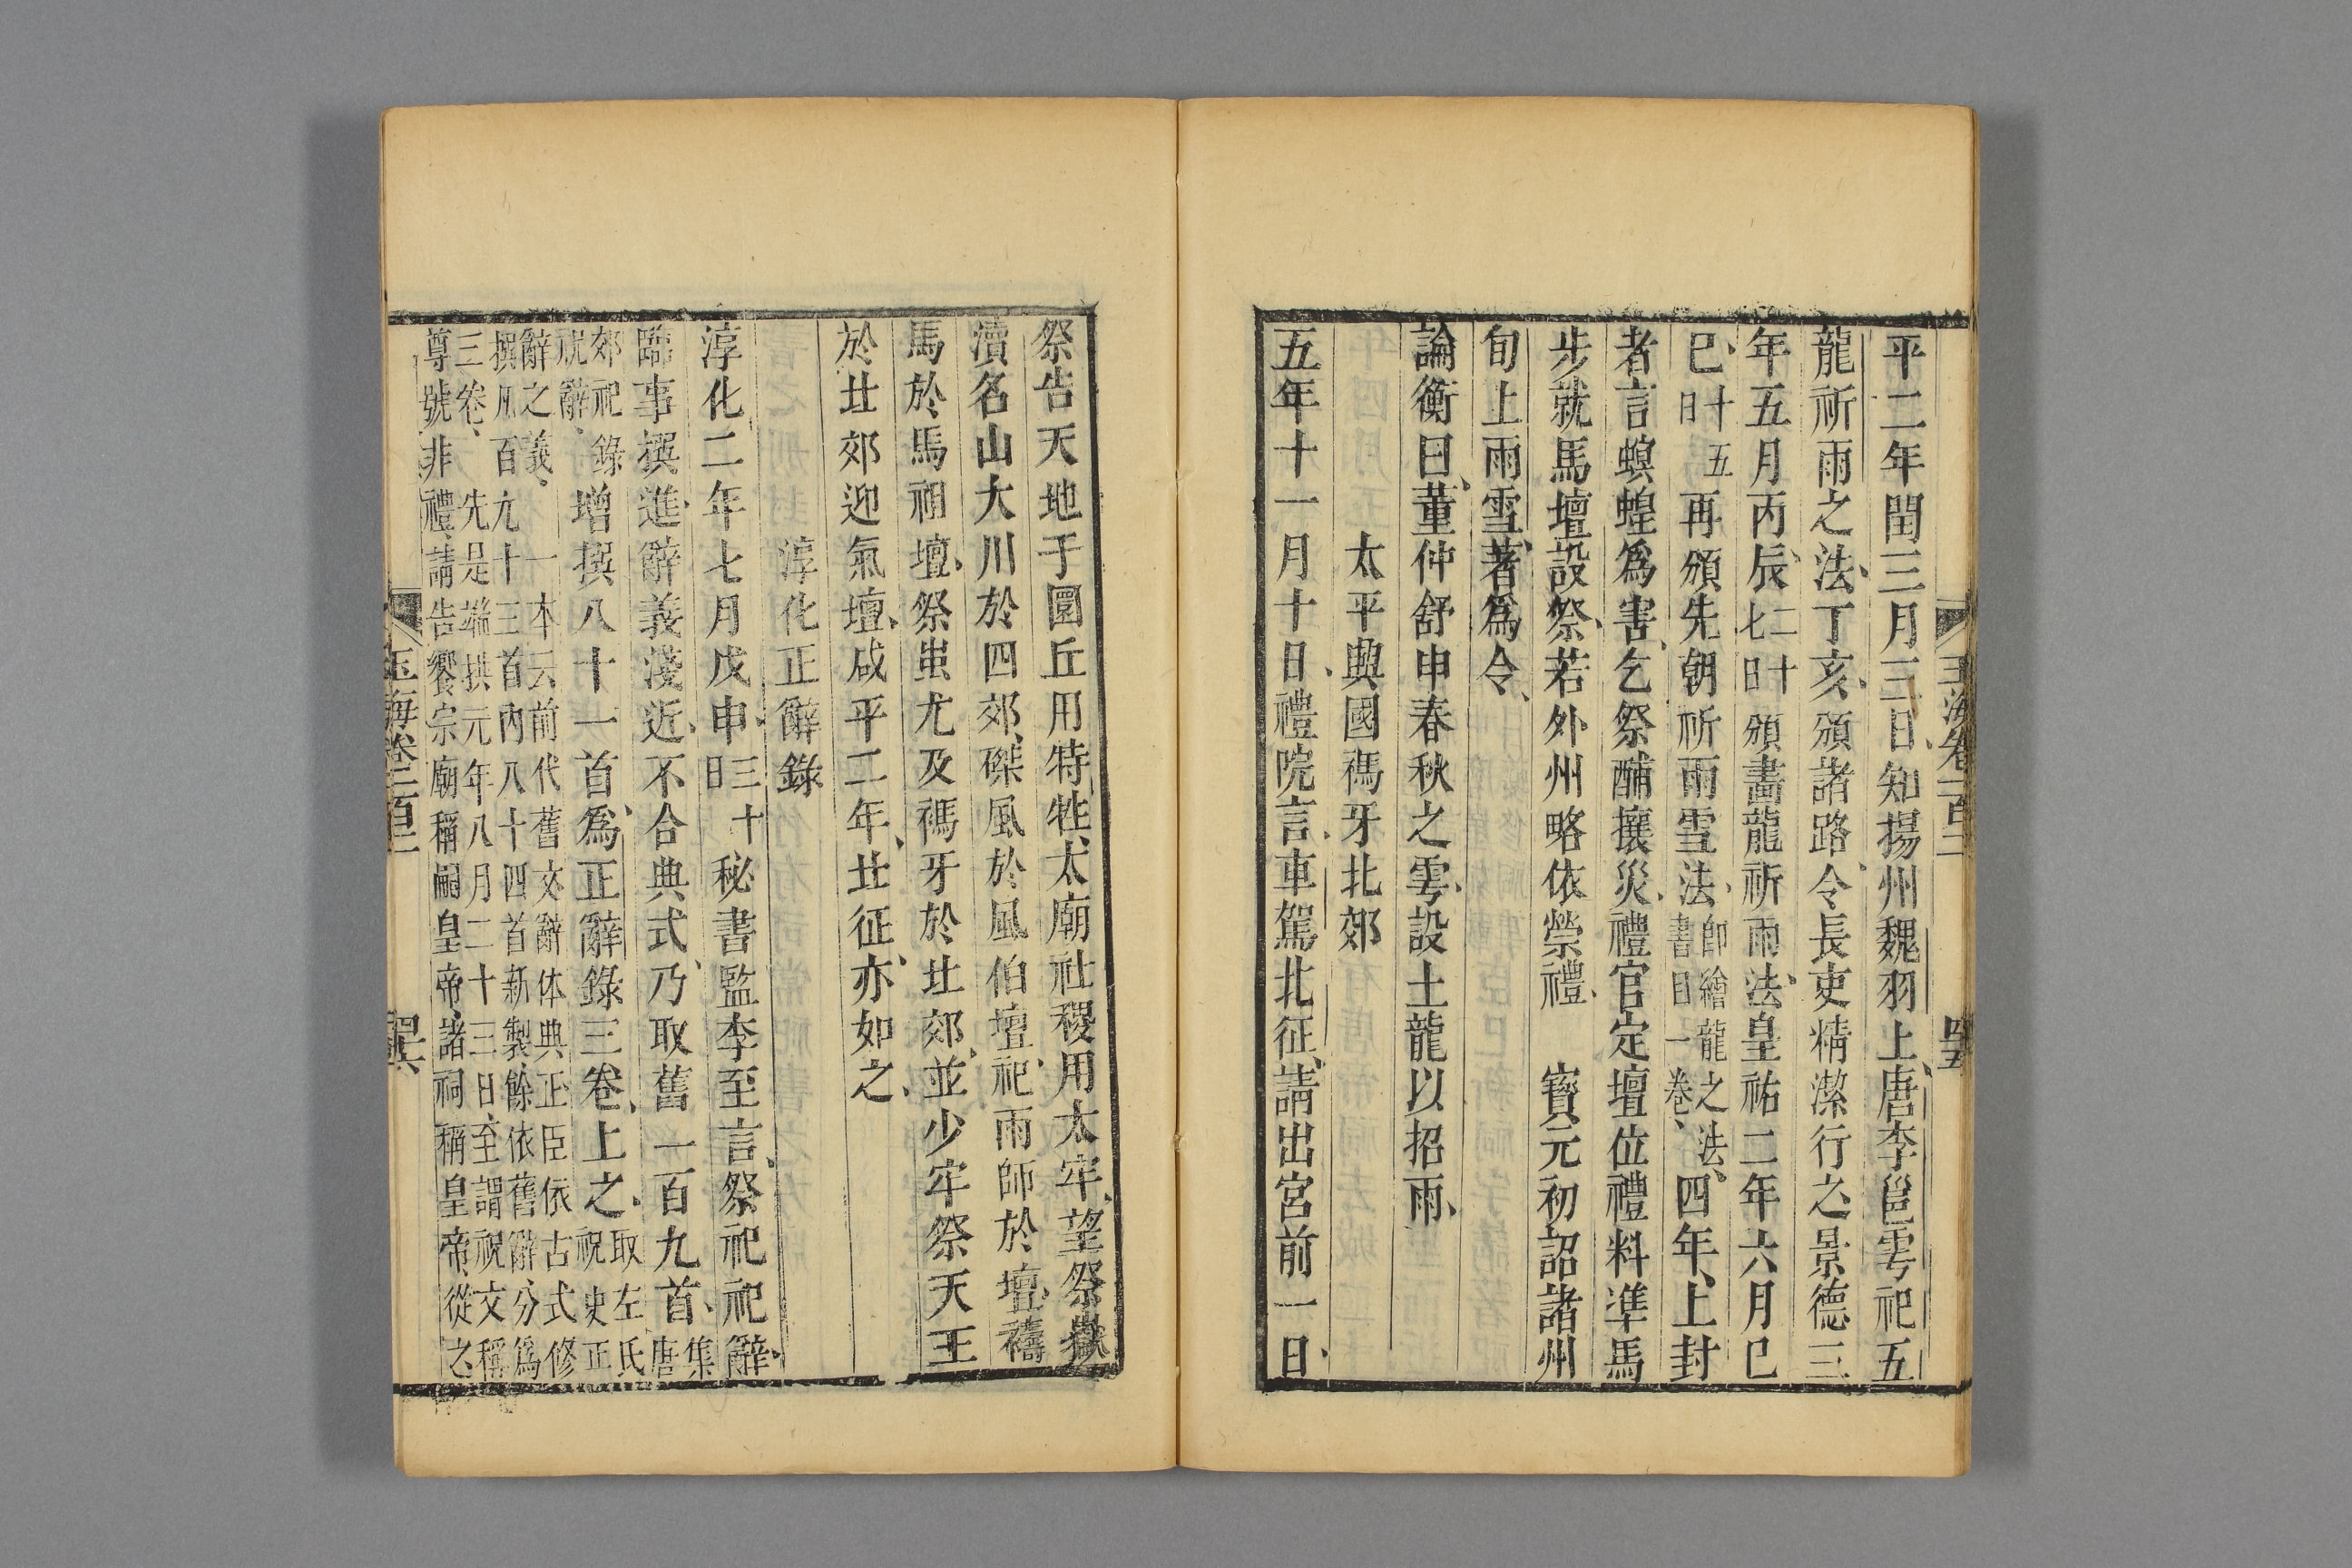 平二年閏三月三日知揚州魏羽上唐李邕雩祀五
龍祈雨之法丁亥頒諸路令長吏精潔行之景德三
年五月丙辰二十七日頒畫龍祈雨法皇祐二年六月己
巳十五日再頒先朝祈雨雪法卽繪龍之法書目一卷四年上封
者言螟蝗為害乞祭酺攘災禮官定壇位禮料準馬
步就馬壇設祭若外州略依禜禮 寶元初詔諸州
旬上雨雪著為令
論衡曰董仲舒申春秋之雩設土龍以招雨
太平興國禡牙北郊
五年十一月十日禮院言車駕北征請出宮前一日
玉海卷一百二
祭告天地于圜丘用特牲太廟社稷用太牢望祭嶽
瀆名山大川於四郊磔風於風伯壇祀雨師於壇禱
馬於馬祖壇祭蚩尤及禡牙於北郊並少牢祭天王
於北郊迎氣壇咸平二年北征亦如之
淳化正辭錄
淳化二年七月戊申三十日秘書監李至言祭祀祀辭
臨事撰進辭義淺近不合典式乃取舊一百九首集唐
郊祀錄祝辭增撰八十一首為正辭錄三卷上之取左氏祝史正
辭之義 一本云前代舊文辭体典正臣依古式修
撰凡百九十三首內八十四首新製餘依舊辭分為
三卷 先是端拱元年八月二十三日至謂祝文稱
尊號非禮請告饗宗廟稱嗣皇帝諸祠稱皇帝從之
玉海卷一百二
四十六